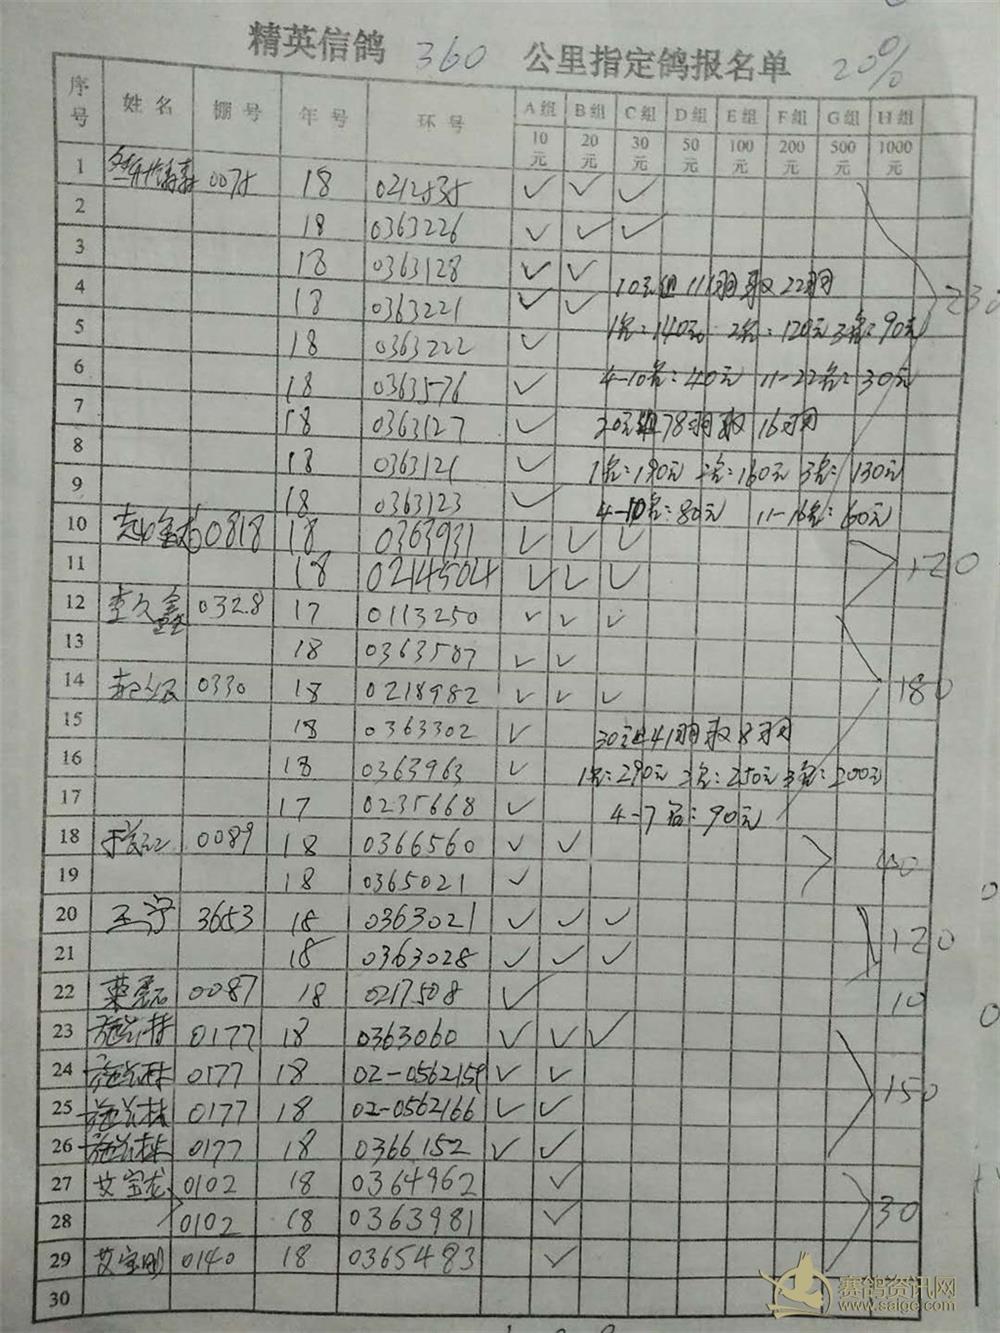 精英信鸽 360 公里指定鸽报名单 20%
序号 姓名 棚号 年号 环号 A组 B组 C组 D组 E组 F组 G组 H组
10元 20元 30元 50元 100元 200元 500元 1000元
1 0075 18 ✓ ✓ ✓
2 18 0363226 ✓ ✓ ✓
3 18 0363128 ✓ ✓
10元组111羽取22羽
4 18 0363221 ✓ ✓
230
1名:140元 2名:120元 3名:90元
5 18 0363222 ✓
4-10名:40元 11-22名:30元
6 18 0363576 ✓
7 18 0363127 ✓
20元组78羽取16羽
8 18 0363121 ✓
1名:190元 2名:160元 3名:130元
9 18 0363123 ✓
4-10名:80元 11-16名:60元
10 0818 18 0363931 ✓ ✓ ✓
120
11 18 0214504 ✓ ✓ ✓
12 李久鑫 0328 17 0113250 ✓ ✓ ✓
13 18 0363587 ✓ ✓
180
14 0330 18 0218982 ✓ ✓ ✓
15 18 0363302 ✓
30元组41羽取8羽
16 18 0363963 ✓
1名:290元 2名:250元 3名:200元
17 17 0235668 ✓
4-7名:90元
18 0089 18 0366560 ✓ ✓
40
19 18 0365021 ✓
20 王宁 3653 18 0363021 ✓ ✓ ✓
120
21 18 0363028 ✓ ✓ ✓
22 0087 18 0217508 ✓
10
23 0177 18 0363060 ✓ ✓ ✓
24 0177 18 02-0562159 ✓ ✓
150
25 0177 18 02-0562166 ✓ ✓
26 0177 18 0366152 ✓ ✓
27 艾宝龙 0102 18 0364962 ✓
30
28 0102 18 0363981 ✓
29 艾宝刚 0140 18 0365483 ✓
30
赛鸽资讯网
www.saige.com